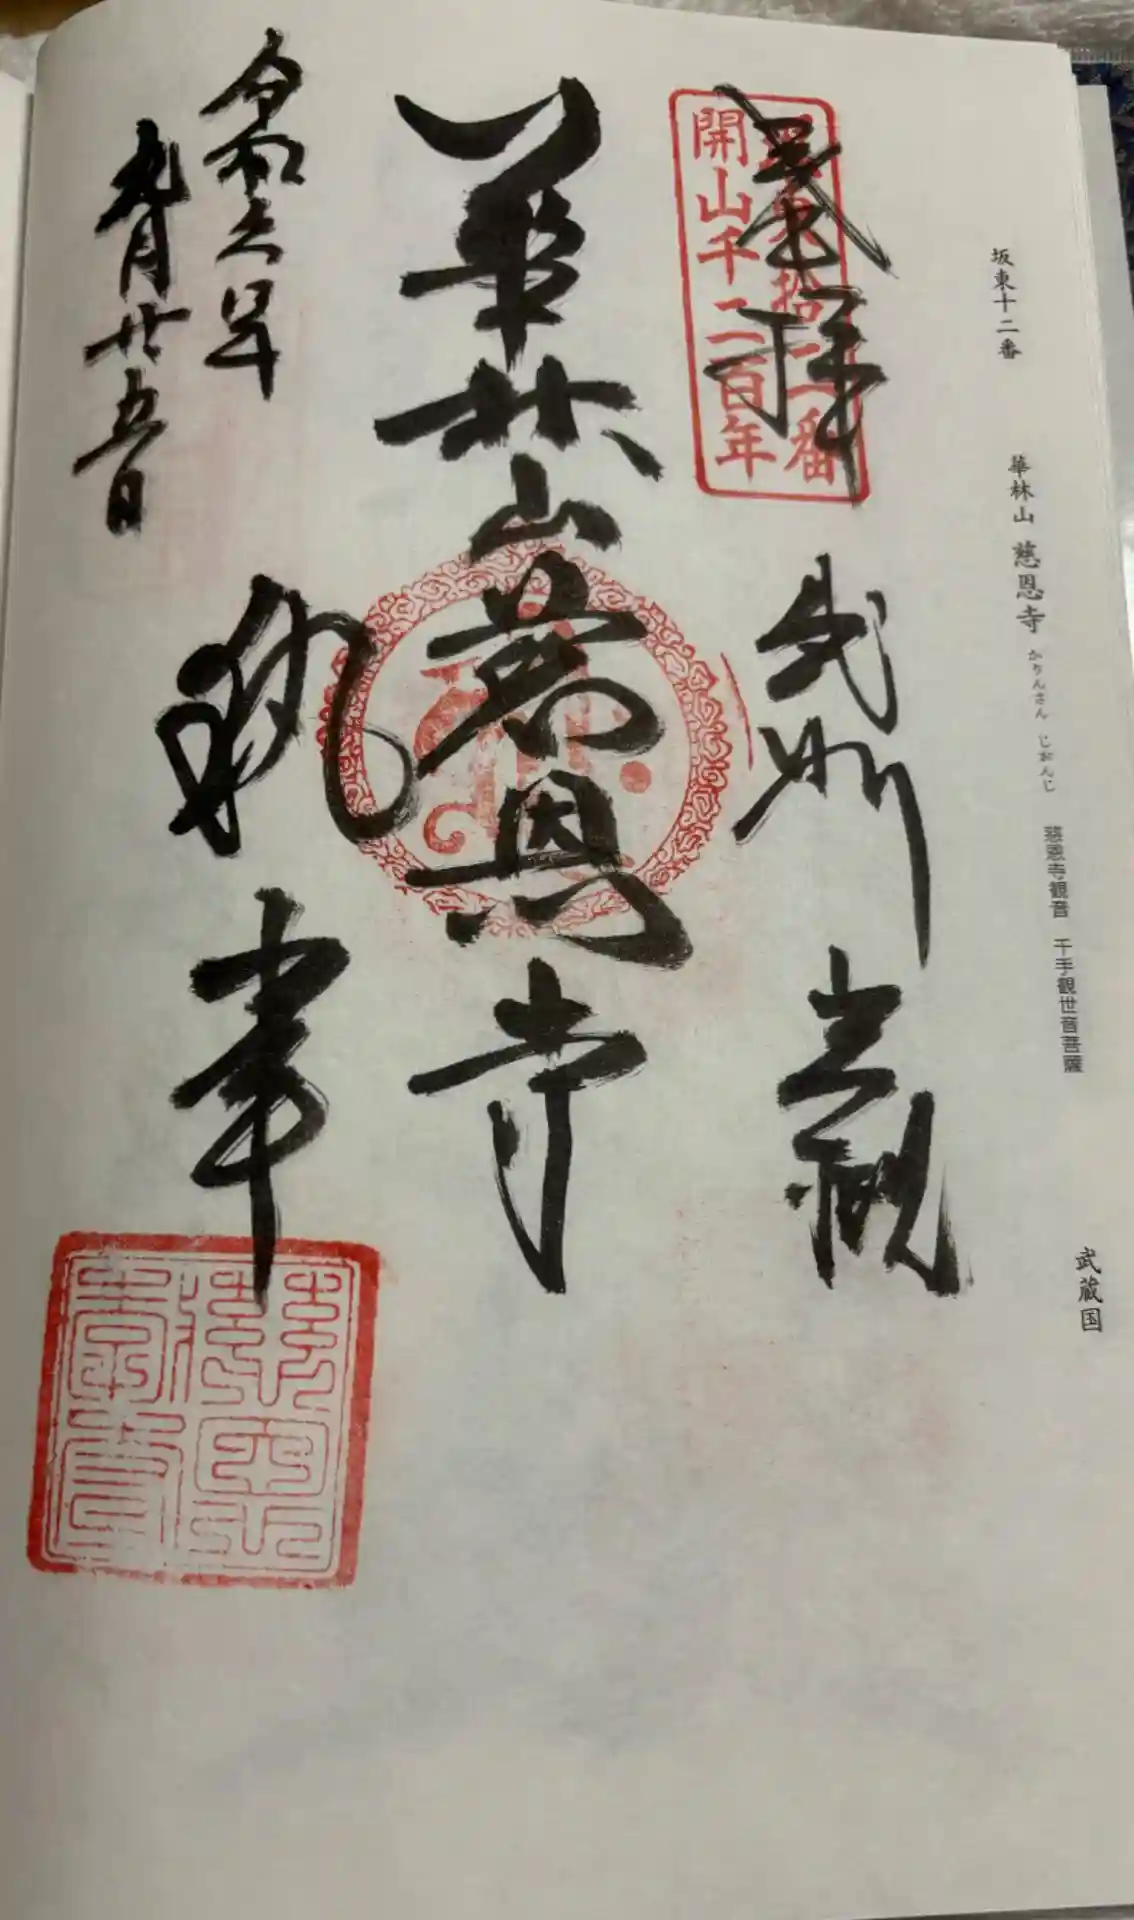 坂東十二番 華林山 慈恩寺 かりんさん じおんじ 慈恩寺観音 千手観世音菩薩 武蔵国
坂東拾二番
開山千二百年
奉拝
武州 岩槻
華林山慈恩寺
執事
令和六年
九月廿五日